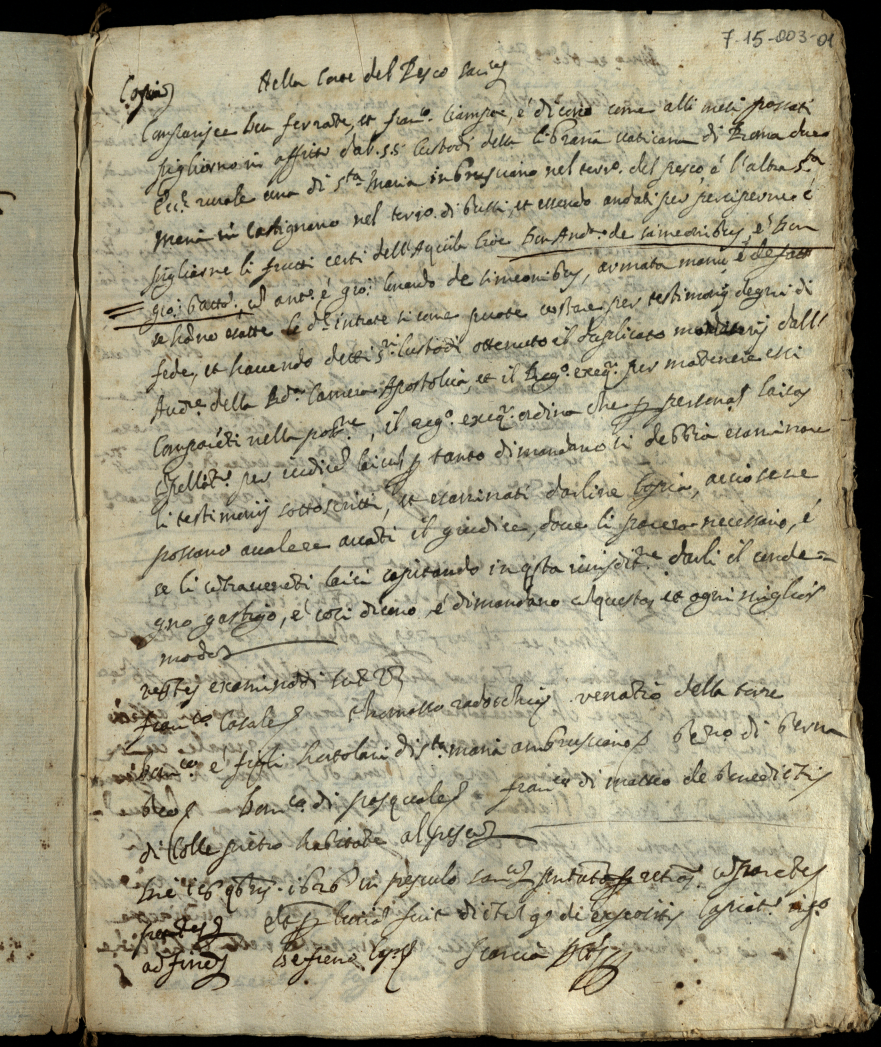 7-15-003-01
Copia
Nella Corte del Pesco
Compareno Don Ferrante, et Franco. Ciampe, é dicono come alli mesi passati
pigliorno in affitto dal SS. Custodi della libraria Vaticana di Roma due
Ecc.e rurale una di Sta Maria in brusciano nel terro. del pesco é l'altra Sta
Maria in Cartignano nel terro. di Bussi, et essendo andati per perciperne é
pigliarne li frutti certi dell'Aquila Cioe Don Andr. de simeonibus, é Don
gio: batta, et ant.o é gio: berardo de simeonibus, armata manu é de facto
se hanno esatte le d.e intrate si come puote costare per testimonij degni di
fede, et havendo detti ss.ri Custodi ottenuto il duplicato monitorij dall'
Aud.re della Rda. Camera Apostolica, et il Reg.o exeq.r per mantenere essi
Comparenti nella poss.ne, il reg.o exeq.r ordina che per persona laica
per iudice laicu per tanto dimandano si debbia esaminare
li testimonij sottoscritti, et esaminati darline Copia, acciò se ne
possano avalere avanti il giudice, dove li parera necessario, é
se li contravenenti laici capitando in questa iurisdit.ne darli il conde=
gno gastigo, é cosi dicono, é dimandano et questo, et ogni miglior
modo
testes examinandi sunt
Franco. Casale Thomasso venatio della torre
é figli hortolani di Sta Maria ambrusciano di berna
Dom.co di pasquale Franco. di Matteo de benedictis
di Colle pietro habitante al pesco
Die 16 9bris 1626 in pesculo
et fuit
ad fines